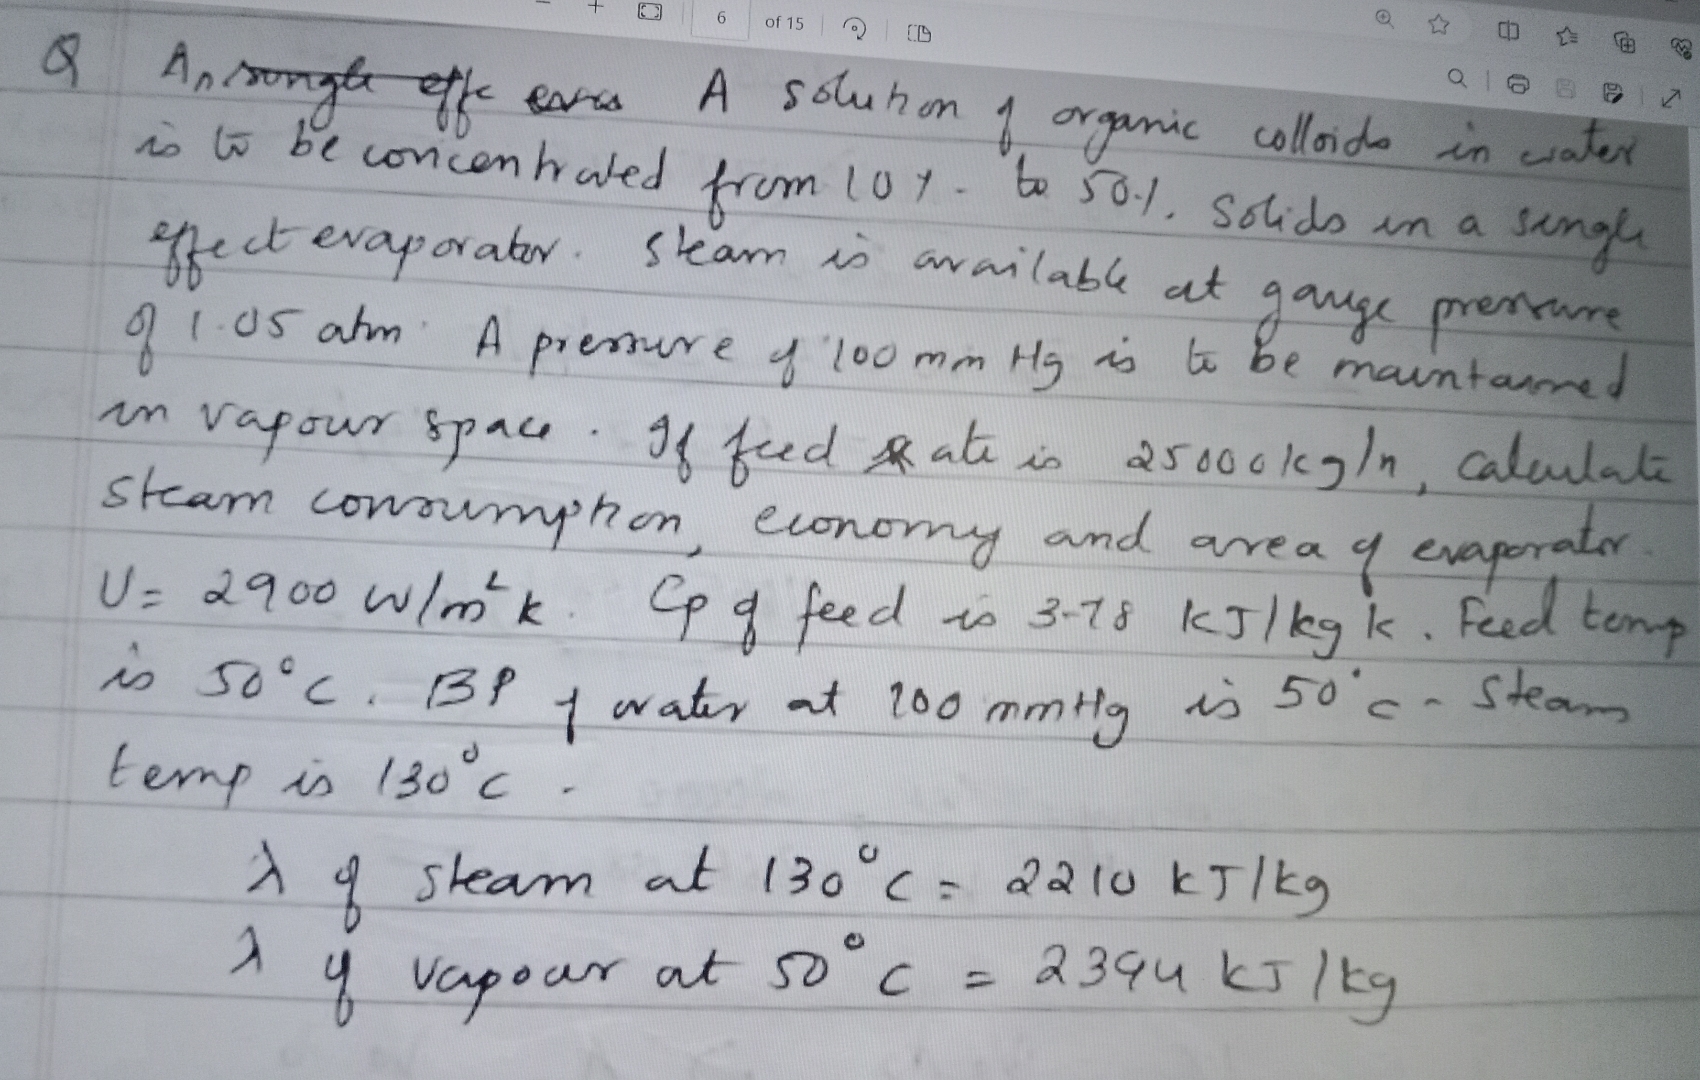 6 of 15
Q An single effe evas A solution of organic colloids in water
is to be concentrated from 10%. to 50%. Solids in a single
effect evaporator. Steam is available at gauge pressure
of 1.05 atm. A pressure of 100 mm Hg is to be maintained
in vapour space. If feed rate is 25000 kg/h, calculate
steam consumption, economy and area of evaporator.
U = 2900 W/m²K. Cp of feed is 3.78 KJ/kg k. Feed temp
is 50°C. BP of water at 100 mmHg is 50°C. Steam
temp is 130°C.
λ of steam at 130°C = 2210 KJ/kg
λ of vapour at 50°C = 2394 KJ/kg